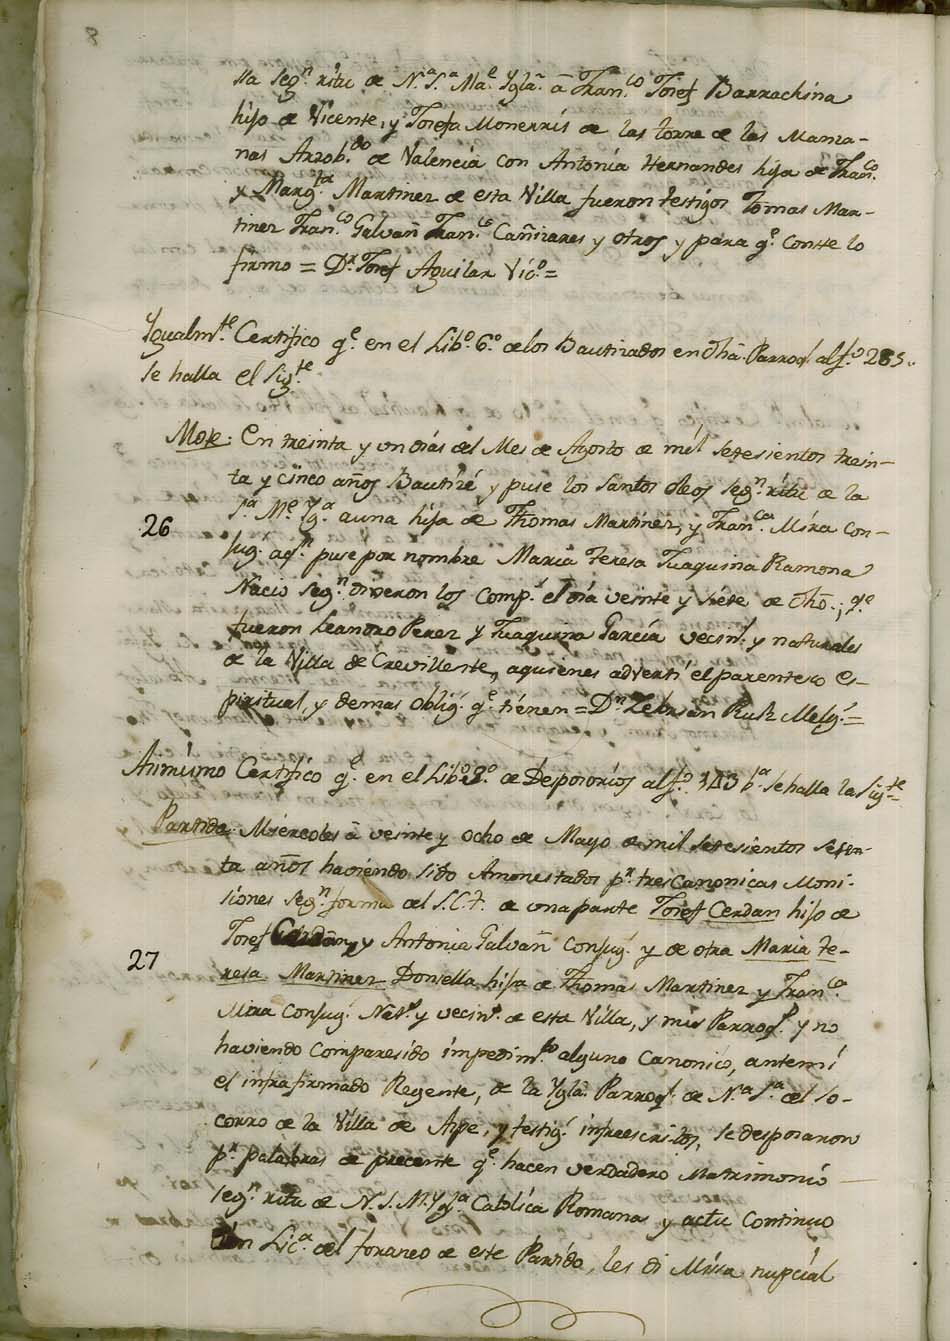 8
lla seg.n ritu de N.a S.a Ma.e Ygla. â Fran.co Josef Barrachina
hijo de Vicente, y Josefa Monerris de las torre de las Manza-
nas Arzob.do de Valencia con Antonia Hernandes hija de Fran.co
y Marg.ta Martinez de esta Villa fueron testigos Tomas Mar-
tinez Fran.co Galvañ Fran.co Cañizares y otros y para q.e conste lo
firmo = D.r Josef Aguilar Vic.o =
Ygualm.te Certifico q.e en el Lib.o 6.o de los Bautizados en dha. Parroq.l al f.o 285..
se halla el sig.te
Mote: En treinta y un dias del Mes de Agosto de mil setesientos trein-
ta y cinco años Bautizé y puse los santos oleos seg.n ritu de la
S.a M.e Yg.a a una hija de Thomas Martinez, y Fran.ca Mira con-
26
jug.s a q.n puse por nombre Maria teresa Juaquina Ramona
Nacio seg.n dixeron los Comp.s el dia veinte y siete de dho.; q.e
fueron Leandro Perez y Juaquina Garcia vecin.s y naturales
de la Villa de Crevillente, a quienes adverti el parentesco es-
piritual, y demas oblig.s q.e tienen = D.n Zebrian Ruiz Melg.s =
Asimismo Certifico q.e en el Lib.o 8.o de Desposorios al f.o 143 b.ta se halla la sig.te =
Partida. Miercoles â veinte y ocho de Mayo de mil setesientos seten-
ta años haviendo sido Amonestados p.r tres Canonicas Moni-
siones seg.n forma del S.C.t. de una parte Josef Cerdan hijo de
Josef Cerdan, y Antonia Galvañ conjug.s y de otra Maria te-
27
resa Martinez Donsella hija de Thomas Martinez y Fran.ca
Mira conjug.s Nat.s y vecin.s de esta Villa, y mis Parroq.s y no
haviendo comparesido impedim.to alguno canonico, ante mi
el infrafirmado Regente, de la Ygla. Parroq.l de N.a S.a del so-
corro de la Villa de Aspe, y testig.s infraescritos, se desposaron
p.r palabras de precente q.e hacen verdadero Matrimonio
seg.n ritu de N.S.M.Yg.a Catolica Romana y actu continuo
Lic.a del foraneo de este Partido, les di Missa nupcial